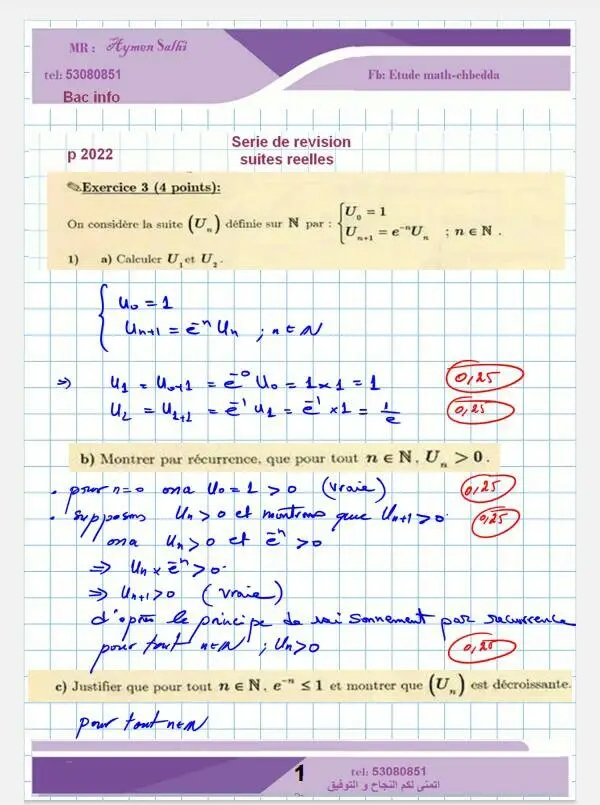 MR : Aymen Salhi
tel: 53080851
Fb: Etude math-chbedda
Bac info
Serie de revision
p 2022
suites reelles
Exercice 3 (4 points):
On considère la suite (Uₙ) définie sur ℕ par : { U₀ = 1
Uₙ₊₁ = e⁻ⁿUₙ ; n ∈ ℕ .
1) a) Calculer U₁ et U₂ .
{ U₀ = 1
Uₙ₊₁ = e⁻ⁿ Uₙ ; n ∈ N
=> U₁ = U₀₊₁ = e⁻⁰ U₀ = 1 x 1 = 1 0,25
U₂ = U₁₊₁ = e⁻¹ U₁ = e⁻¹ x 1 = 1/e 0,25
b) Montrer par récurrence, que pour tout n ∈ ℕ, Uₙ > 0 .
. pour n=0 ona U₀ = 1 > 0 (vraie) 0,25
. supposons Uₙ > 0 et montrons que Uₙ₊₁ > 0 0,25
ona Uₙ > 0 et e⁻ⁿ > 0
=> Uₙ x e⁻ⁿ > 0
=> Uₙ₊₁ > 0 (vraie)
d'après le principe de raisonnement par recurrence
pour tout n ∈ N ; Uₙ > 0 0,25
c) Justifier que pour tout n ∈ ℕ, e⁻ⁿ ≤ 1 et montrer que (Uₙ) est décroissante.
pour tout n ∈ N
1
tel: 53080851
اتمنى لكم النجاح و التوفيق